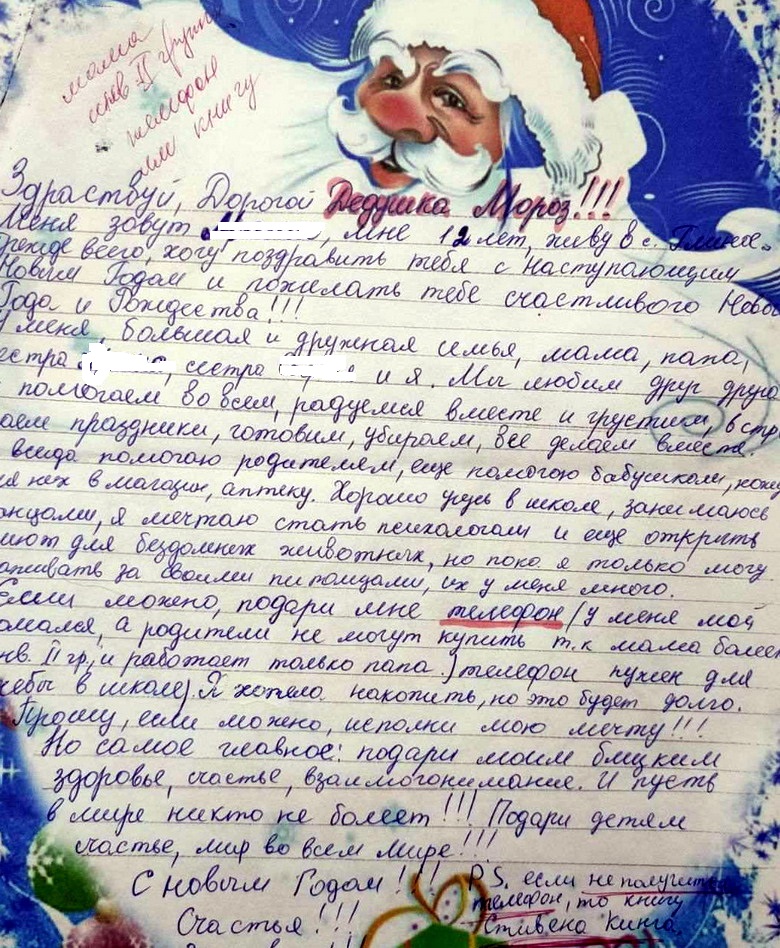 мама
инв II групп
телефон
или книгу
Здраствуй, Дорогой Дедушка Мороз!!!
Меня зовут , мне 12 лет, живу в с.
Прежде всего, хочу поздравить тебя с Наступающим
Новым Годам и пожилать тебе счастливого Ново
Года и Рождества!!!
У меня, большая и дружная семья, мама, папа,
естра , сестра и я. Мы любим друг друга
помогаем во всем, радуемся вместе и грустим, встр
аем праздники, готовим, убираем, все делаем вместе.
всегда помогаю родителям, еще помогаю бабушкам, хожу
ля них в магазин, аптеку. Хорошо учусь в школе, занимаюсь
анцами, я мечтаю стать психологам и еще открыть
иют для бездомных животных, но пока я только могу
аживать за своими питомцами, их у меня много.
Если можно, подари мне телефон (у меня мой
омался, а родители не могут купить т.к мама болеет
нв. II гр, и работает только папа.) телефон нужен для
чебы в школе. Я хотела накопить, но это будет долго.
Прошу, если можно, исполни мою мечту!!!
Но самое главное: подари моим близким
здоровье, счастье, взаимопонимание. И пусть
в мире никто не болеет!!! Подари детям
счастье, мир во всем мире!!!
С новым Годом!!!
Счастья!!!
P.S. если не получится
телефон, то книгу
Стивена Кинга.